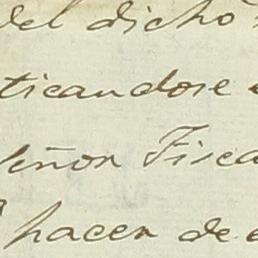 del dicho
ticandose
señor Fisca
hacer de e